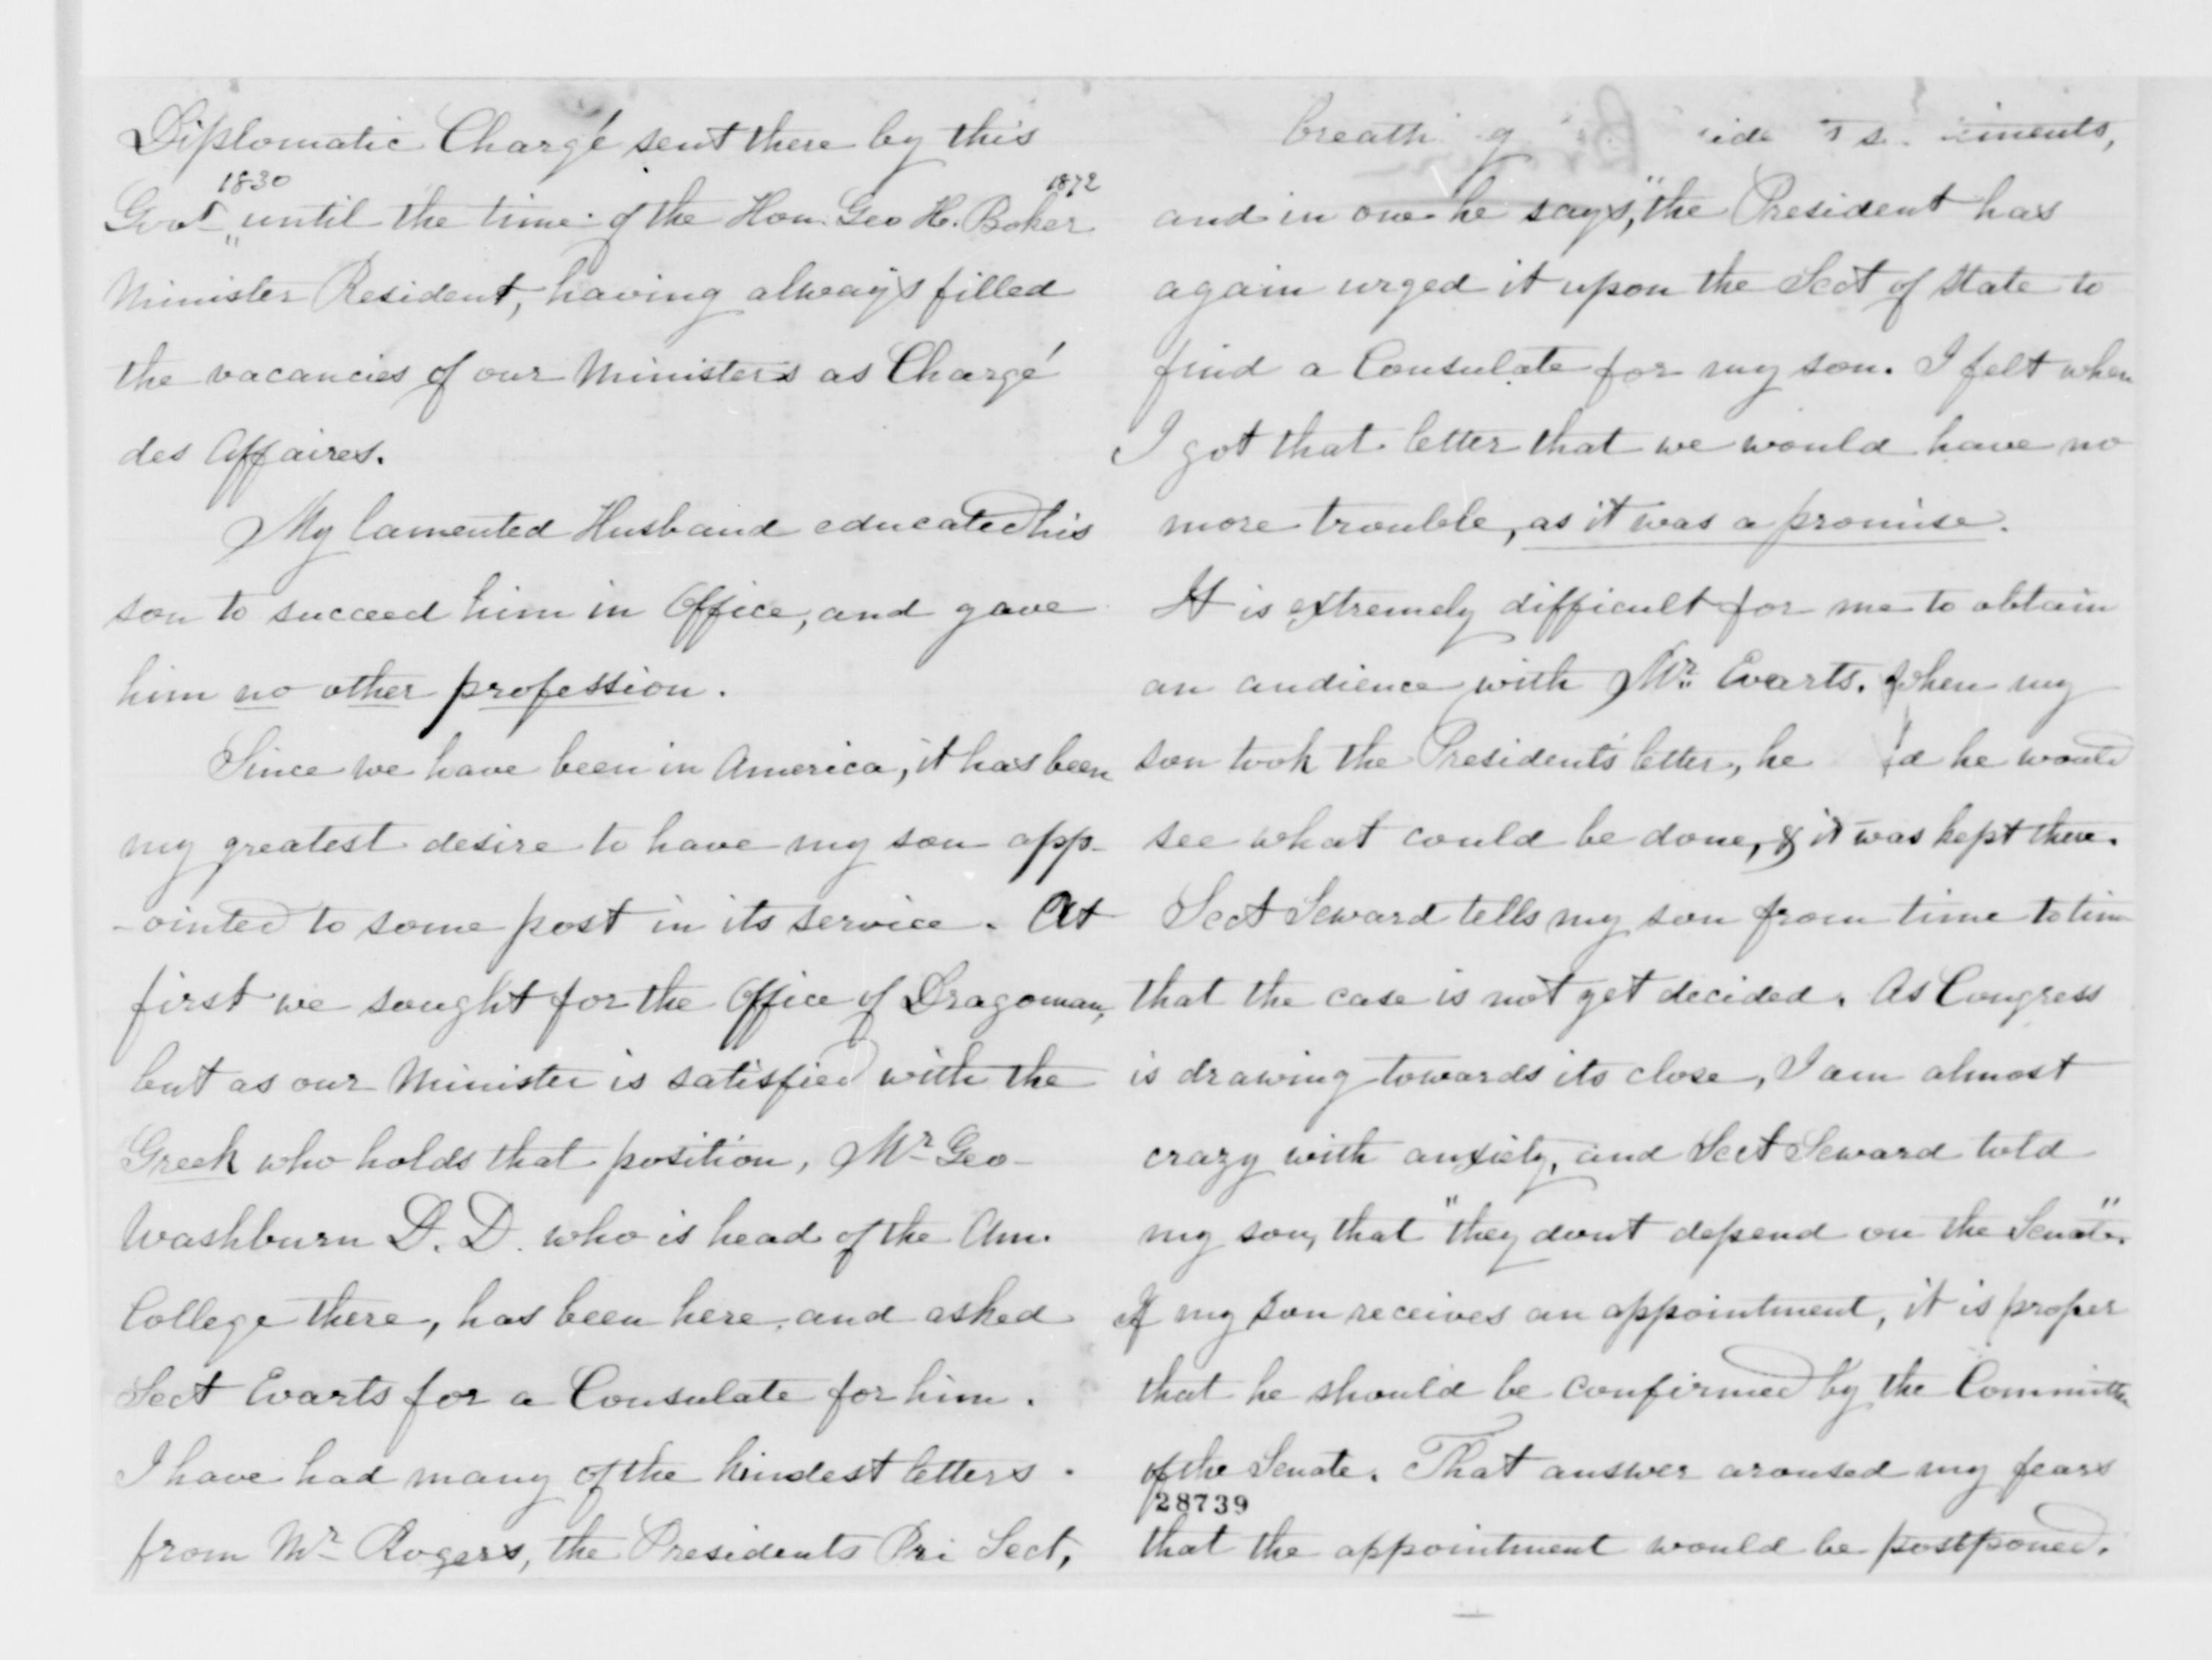 Diplomatic Chargé sent there by this
1830 1872
Govt „ until the time of the Hon. Geo H. Boker
Minister Resident, having always filled
the vacancies of our Ministers as Chargé
des Affaires.
My lamented Husband educated his
son to succeed him in Office, and gave
him no other profession.
Since we have been in America, it has been
my greatest desire to have my son app-
-ointed to some post in its service. At
first we sought for the Office of Dragoman,
but as our Minister is satisfied with the
Greek who holds that position, Mr Geo
Washburn D. D. who is head of the Am.
College there, has been here and asked
Sect Evarts for a Consulate for him.
I have had many of the kindest letters
from Mr Rogers, the Presidents Pri Sect,
and in one he says, "the President has
again urged it upon the Sect of State to
find a Consulate for my son. I felt when
I got that letter that we would have no
more trouble, as it was a promise.
It is extremely difficult for me to obtain
an audience with Mr. Evarts. When my
son took the Presidents' letter, he he would
see what could be done, & it was kept there.
Sect Seward tells my son from time to time
that the case is not yet decided. As Congress
is drawing towards its close, I am almost
crazy with anxiety, and Sect Seward told
my son, that "they dont depend on the Senate."
If my son receives an appointment, it is proper
that he should be confirmed by the Committee
of the Senate. That answer aroused my fears
28739
that the appointment would be postponed.